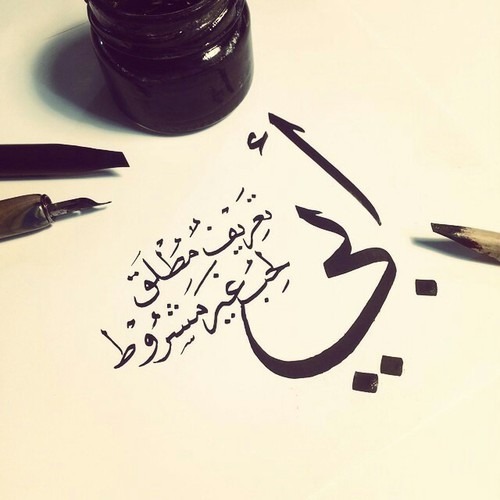 أبي
تَعْرِيفْ مُطْلَق
لِحُبْ غَيرْ مَشِرُوُطْ